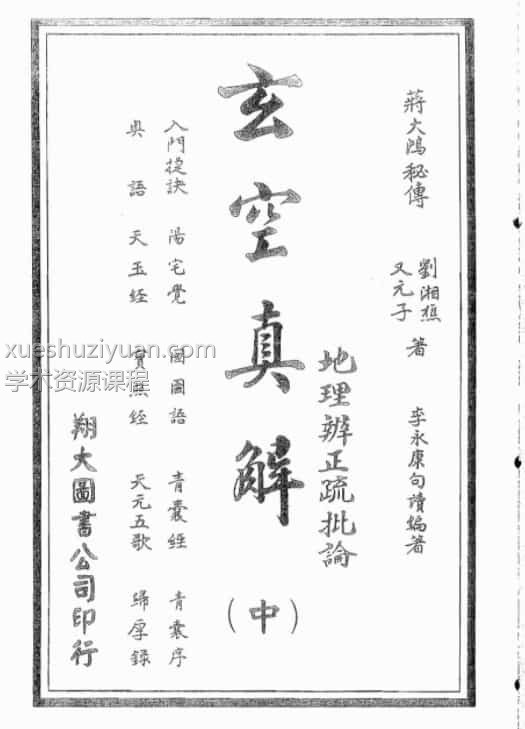 蔣大鴻秘傳
劉湘樵
又元子
著
李永康句讀編著
地理辨正疏批論
玄空真解
（中）
入門捷訣 陽宅覺 囫圇語 青囊經 青囊序
奥語 天玉經 寶照經 天元五歌 歸厚錄
翔大圖書公司印行
xueshuziyuan.com
学术资源课程